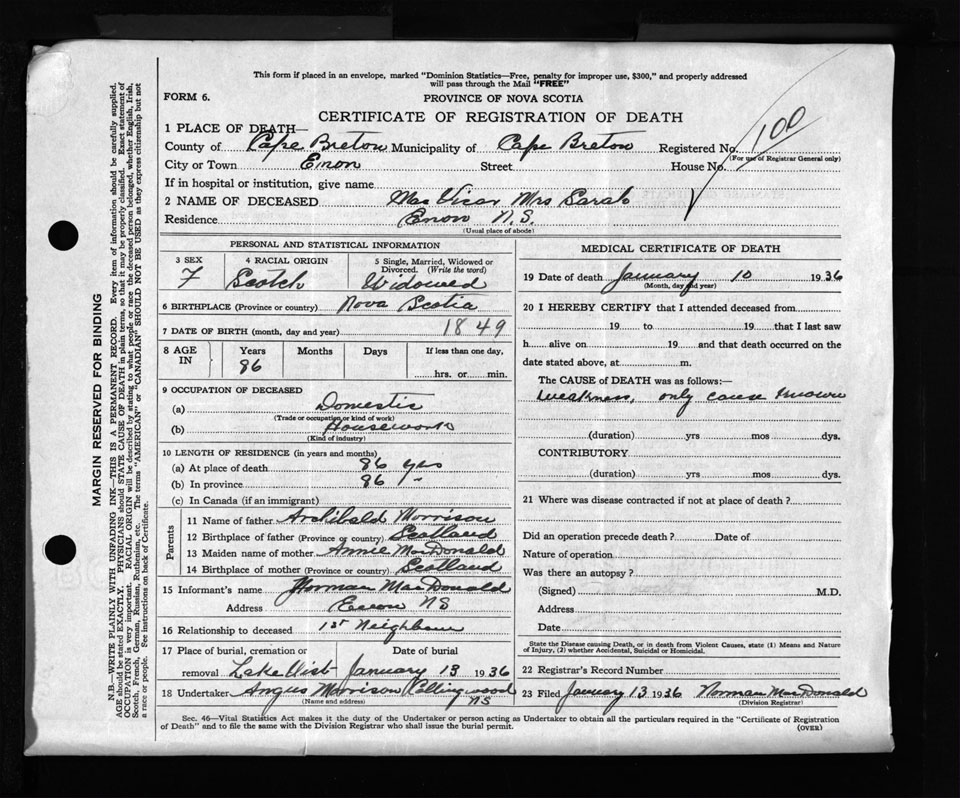 This form if placed in an envelope, marked "Dominion Statistics—Free, penalty for improper use, $300," and properly addressed
will pass through the Mail "FREE"
FORM 6.
PROVINCE OF NOVA SCOTIA
CERTIFICATE OF REGISTRATION OF DEATH
100
1 PLACE OF DEATH—
County of Cape Breton Municipality of Cape Breton Registered No.
(For use of Registrar General only)
City or Town Enon Street House No.
If in hospital or institution, give name
2 NAME OF DECEASED MacVicar Mrs Sarah
Residence Enon N.S.
(Usual place of abode)
PERSONAL AND STATISTICAL INFORMATION
3 SEX 4 RACIAL ORIGIN 5 Single, Married, Widowed or
Divorced. (Write the word)
F Scotch Widowed
6 BIRTHPLACE (Province or country) Nova Scotia
7 DATE OF BIRTH (month, day and year) 1849
8 AGE IN Years Months Days If less than one day,
86 hrs. or min.
9 OCCUPATION OF DECEASED
(a) Domestic
(Trade or occupation or kind of work)
(b) Housework
(Kind of industry)
10 LENGTH OF RESIDENCE (in years and months)
(a) At place of death 86 yrs
(b) In province 86
(c) In Canada (if an immigrant)
Parents
11 Name of father Archibald Morrison
12 Birthplace of father (Province or country) Scotland
13 Maiden name of mother Annie MacDonald
14 Birthplace of mother (Province or country) Scotland
15 Informant's name Norman MacDonald
Address Enon NS
16 Relationship to deceased 1st Neighbour
17 Place of burial, cremation or Date of burial
removal Lake Uist January 13 1936
18 Undertaker Angus Morrison Collingwood
NS
(Name and address)
MEDICAL CERTIFICATE OF DEATH
19 Date of death January 10 1936
(Month, day and year)
20 I HEREBY CERTIFY that I attended deceased from
19 to 19 that I last saw
h alive on 19 and that death occurred on the
date stated above, at m.
The CAUSE OF DEATH was as follows:—
Weakness, only cause known
(duration) yrs mos dys.
CONTRIBUTORY
(duration) yrs mos dys.
21 Where was disease contracted if not at place of death ?
Did an operation precede death ? Date of
Nature of operation
Was there an autopsy ?
(Signed) M.D.
Address
Date
State the Disease causing Death, or in death from Violent Causes, state (1) Means and Nature
of Injury, (2) whether Accidental, Suicidal or Homicidal.
22 Registrar's Record Number
23 Filed January 13 1936 Norman MacDonald
(Division Registrar)
Sec. 46—Vital Statistics Act makes it the duty of the Undertaker or person acting as Undertaker to obtain all the particulars required in the "Certificate of Registration
of Death" and to file the same with the Division Registrar who shall issue the burial permit.
(OVER)
MARGIN RESERVED FOR BINDING
N.B.—WRITE PLAINLY WITH UNFADING INK—THIS IS A PERMANENT RECORD. Every item of information should be carefully supplied.
AGE should be stated EXACTLY. PHYSICIANS should STATE CAUSE OF DEATH in plain terms, so that it may be properly classified. Exact statement of
OCCUPATION is very important. RACIAL ORIGIN will be described by stating to what people or race the deceased person belonged, whether English, Irish,
Scotch, French, German, Russian, Ruthenian, etc. The terms "AMERICAN" or "CANADIAN" SHOULD NOT BE USED as they express citizenship but not
a race or people. Fee instructions on back of Certificate.